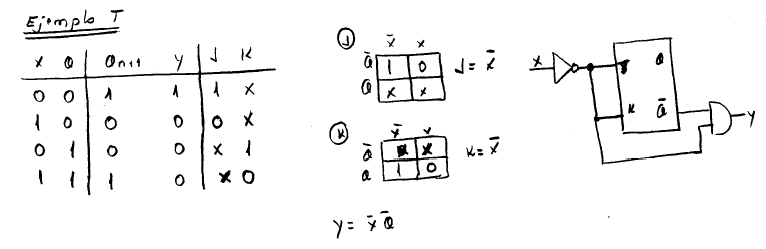 Ejemplo T
X Q Qn+1 Y J K
0 0 1 1 1 X
1 0 0 0 0 X
0 1 0 0 X 1
1 1 1 0 X 0
J
X̄ X
Q̄ 1 0
Q X X
J = X̄
K
X̄ X
Q̄ X X
Q 1 0
K = X̄
Y = X̄ Q̄
X
J Q
K Q̄
Y